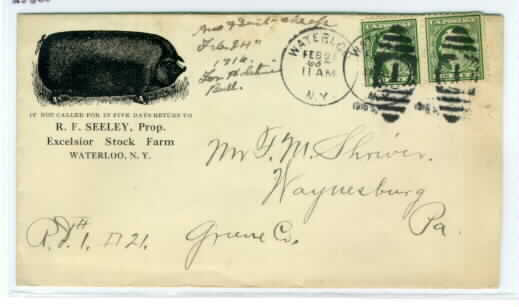 Feb 24"
1916.
For Holstein
Bull.
WATERLOO
FEB 24
11 AM
N.Y.
1916
1916
IF NOT CALLED FOR IN FIVE DAYS RETURN TO
R. F. SEELEY, Prop.
Excelsior Stock Farm
WATERLOO, N. Y.
Mr T. M. Shriver.
Waynesburg
Greene Co. Pa.
R.F.D. 1.